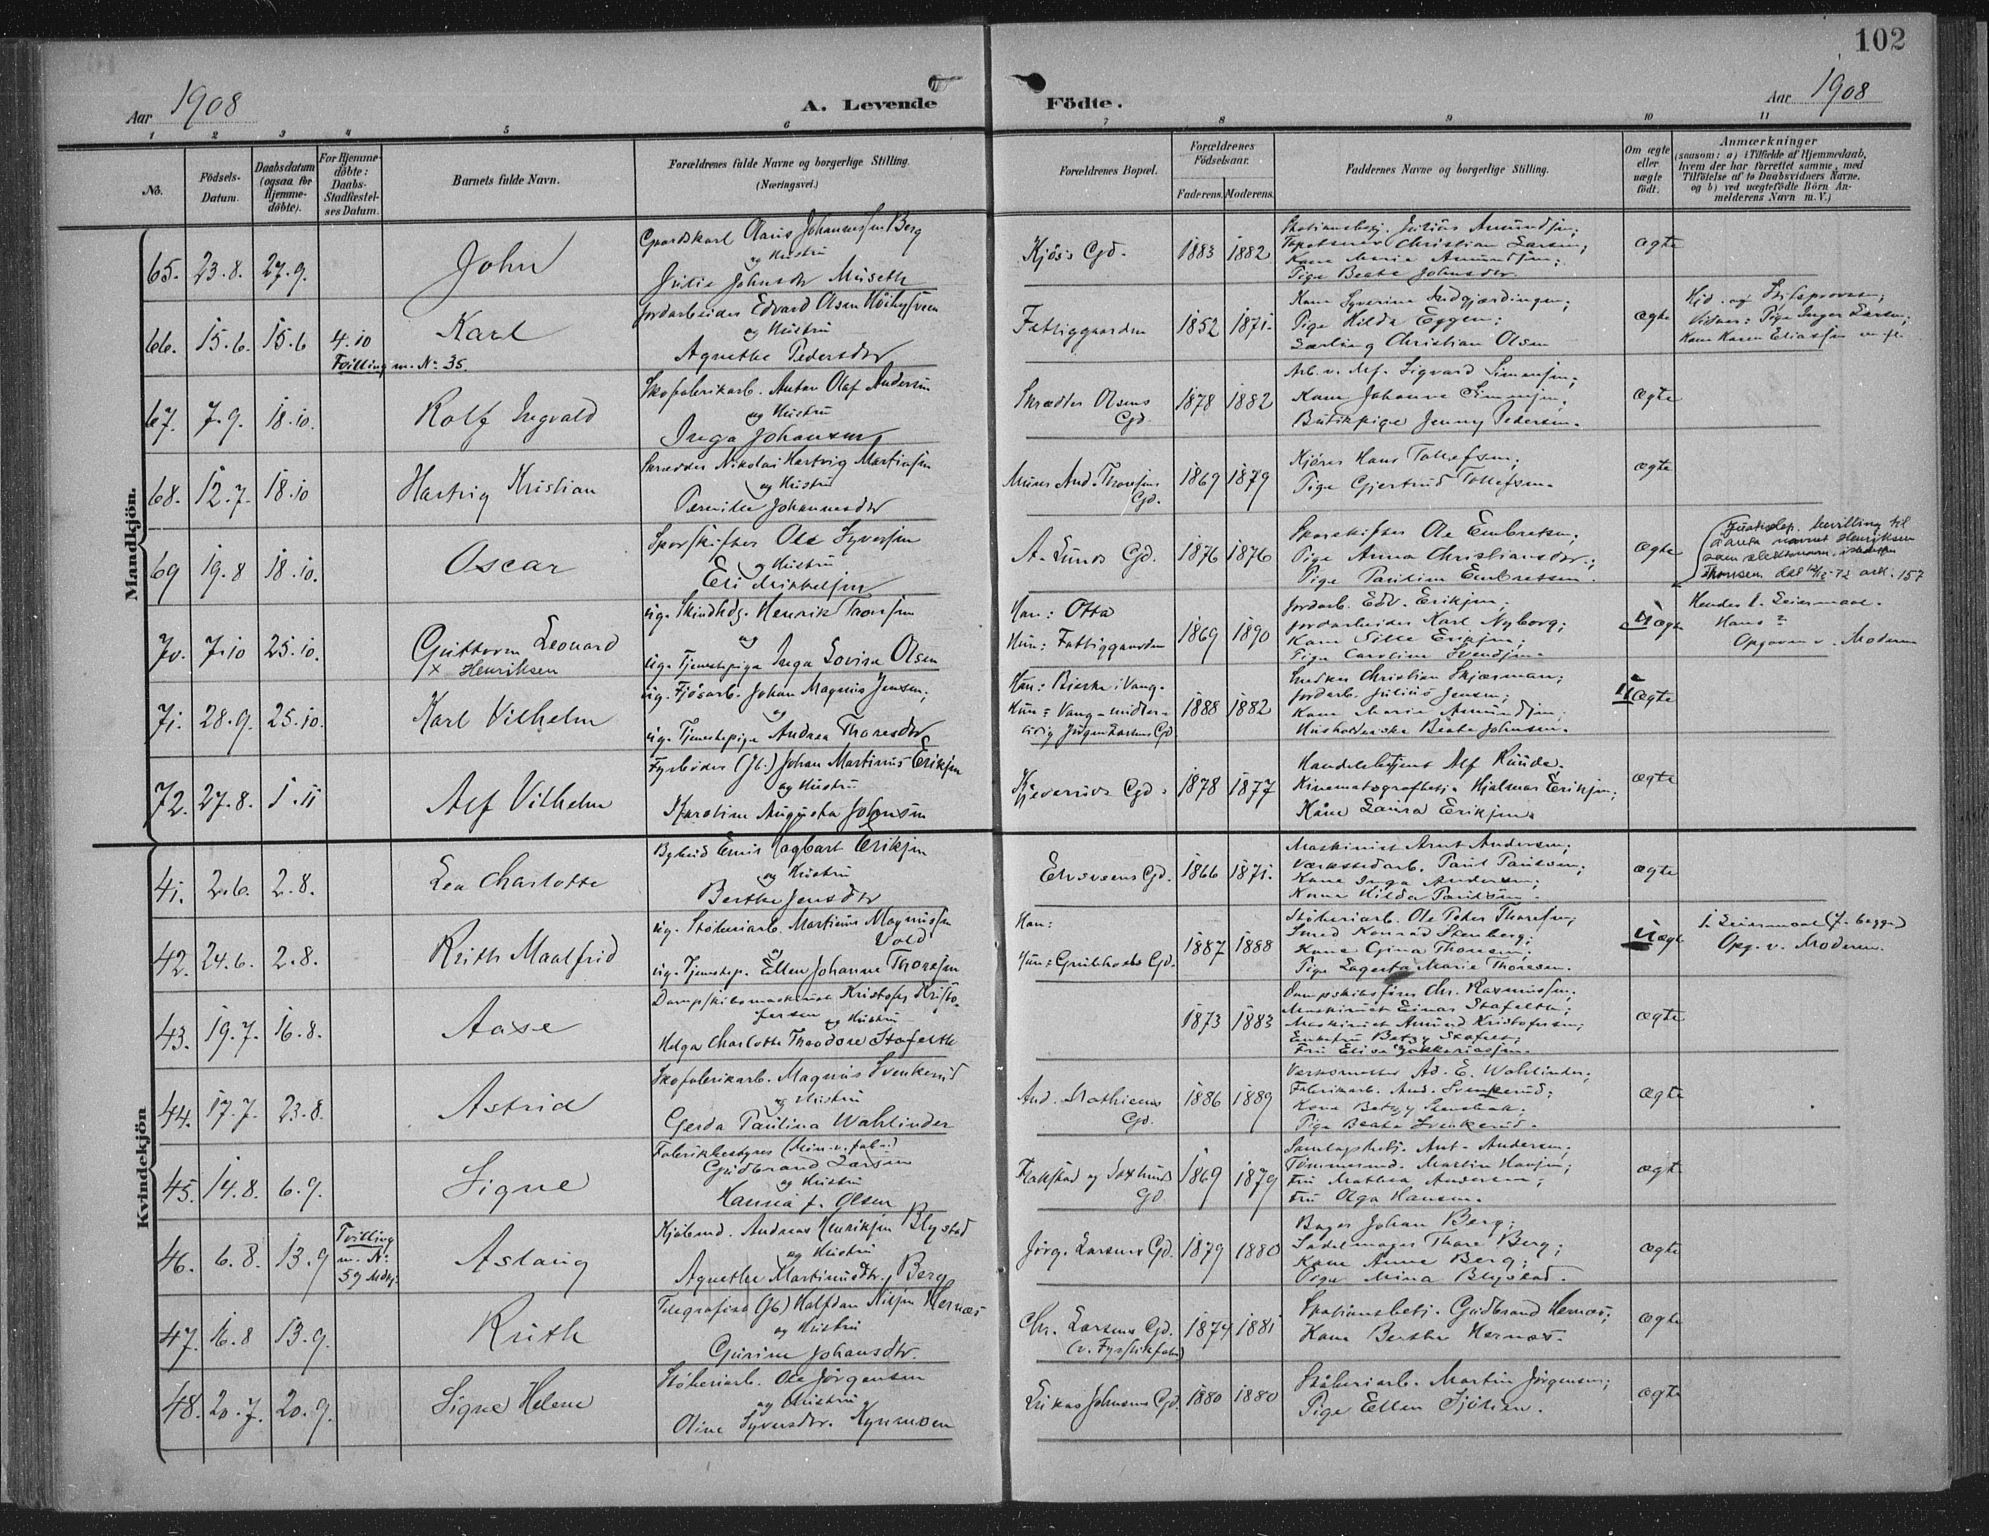 102
Aar 1908
A. Levende Födte.
Aar 1908
1 2 3 4 5 6 7 8 9 10 11
No.
Födsels-Datum.
Daabsdatum (ogsaa för Hjemme-döbte).
For Hjemme-döbte: Daabs-Stadfæstel-ses Datum.
Barnets fulde Navn.
Forældrenes fulde Navne og borgerlige Stilling. (Næringsvei.)
Forældrenes Bopæl.
Forældrenes Födselsaar.
Faderens. Moderens.
Faddernes Navne og borgerlige Stilling.
Om ægte eller uægte födt.
Anmærkninger
(saasom: a) i Tilfælde af Hjemmedaab, hvem der har forrettet samme, med Tilföielse af to Daabsvidners Navne, og b) ved uægtefödte Börn An-melderens Navn m. V.)
Mandkjön.
65. 23.8. 27.9. John
Gaardskarl Olaus Johannessen Berg
og Hustru
Julie Johnsdr Museth
Kjös's Gd. 1883 1882
Stationsbetj. Julius Amundsen;
Christian Larsen;
Kone Maria Amundsen;
Pige Beate Johnsdr.
ægte
66. 15.6. 15.6 4.10 Karl
Tvilling m. No. 35.
Jordarbeider Edvard Olsen
og Hustru
Agnethe Pedersdr
Fattiggaarden 1852 1871.
Kone Syverine
Pige Hilda Eggen;
Særling Christian Olsen
ægte
Vidner: Pige Inger Larsen;
Kone Karen Eliassen
67. 7.9. 18.10. Rolf Ingvald
Skofabrikarb. Anton Olaf Andersen
og Hustru
Inga Johansen
Skrædder Olsens Gd. 1878 1882
Arb. v. Mf. Sigvard Simensen;
Kone Johanne Simensen;
Butikpige Jenny Pedersen.
ægte
68. 12.7. 18.10 Hartvig Kristian
Skrædder Nikolai Hartvig Martinsen
og Hustru
Pernille Johannesdr
Murer And. Thoresens Gd. 1869 1879
Kjörer Hans Tollefsen;
Pige Gjertrud Tollefsen.
ægte
69 19.8 18.10. Oscar
Sporskifter Ole Syversen
og Hustru
Eli Mikkelsen
A. Lunds Gd. 1876 1876
Sporskifter Ole Embretsen;
Pige Anna Christiansdr.;
Pige Pauline Embretsen.
ægte
Justisdep. bevilling til
å anta navnet Henriksen
som slektsnavn istedenfor
Thorsen dat 12/12-72 ark. 157
70. 7.10 25.10. Guttorm Leonard
x Henriksen
ug. Skindhdg. Henrik Thorsen
og
ug. Tjenestepige Inga Lovise Olsen
Han: Otta
Hun: Fattiggaarden 1869 1890
Jordarb. Edv. Eriksen;
Jordarbeider Karl Nyborg;
Kone Eriksen;
Pige Caroline Svendsen.
uægte
Hendes 1. Leiermaal.
Hans ?
Opgaven v. Moderen
71. 28.9. 25.10. Karl Vilhelm
ug. Fjösarb. Johan Magnus Jensen;
og
ug. Tjenestepige Andrea Thoresdr
Han: Bjerke i Vang.
Hun: Vang - midler-
tidig Jörgen Larsens Gd 1888 1882
Snedker Christian Skjærman;
Jordarb. Julius Jensen;
Kone Marie Amundsen;
Husholderske Beate Johnsen.
uægte
72. 27.8. 1.11 Alf Vilhelm
Fyrböder (Jb.) Johan Martinus Eriksen
og Hustru
Karoline Augusta Johnsen
Gd. 1878 1877
Handelsbetjent Alf Ruude.
Kinematografbetj. Hjalmar Eriksen;
Kone Laura Eriksen.
ægte
Kvindekjön
41. 2.6. 2.8. Lea Charlotte
Bybud Emil Dagbart Eriksen
og Hustru
Berthe Jensdr
Gd. 1866 1871.
Maskinist Arnt Andersen;
Værkstedarb. Paul Paulsen;
Kone Inga Andersen;
Kone Hilda Paulsen.
ægte
42. 24.6. 2.8. Ruth Maalfrid
ug. Stöberiarb. Martinus Magnussen
Vold
og
ug. Tjenestep. Ellen Johanne Thoresen
Han:
Hun: Gd. 1887 1888
Stöberiarb. Ole Peder Thoresen;
Smed Konrad Stenberg;
Kone Gina Thoresen;
Pige Lagerta Marie Thoresen.
uægte
1. Leiermaal (f. begge)
Opg. v. Moderen.
43. 19.7. 16.8. Aase
Dampskibsmaskinist Kristofer Kristo-
fersen og Hustru
Helga Charlotte Theodore Stafelth
1873 1883
Dampskibsförer Chr. Rasmussen;
Maskinist Einar Stafelth;
Maskinist Amund Kristofersen;
Enkefru Betzy Stafelt;
Fru Elise Zakkariassen.
ægte
44. 17.7. 23.8. Astrid
Skofabrikarb. Magnus Svenkerud
og Hustru
Gerda Paulina Wahlinder
And. Mathiesens Gd. 1886 1889
Værksmester Ad. E. Wahlinder;
Fabrikarb. And. Svenkerud;
Kone Betzy Stensbak;
Pige Beate Svenkerud.
ægte
45. 14.8. 6.9. Signe
Fabrikbestyrer (Min.v.fab.)
Gudbrand Larsen
og Hustru
Hanna f. Olsen
Gd. 1869 1879
Samlagsbetj. Ant. Andersen;
Tömmermd. Martin Hansen;
Fru Mathea Andersen;
Fru Olga Hansen.
ægte
46. 6.8. 13.9 Tvilling
m. No.
59 Mdkj. Aslaug
Hjulmd. Andreas Henriksen Blystad
og Hustru
Agnethe Martinusdtr. Berg
Jörg. Larsens Gd. 1879 1880
Bager Johan Berg;
Sadelmager Thore Berg;
Kone Anne Berg;
Pige Mina Blystad.
ægte
47. 16.8 13.9. Ruth
Telegrafist (Jb) Halfdan Nilsen Hernæs
og Hustru
Gurine Johansdtr.
Chr. Larsens Gd. 1874 1881
(v. Fyrstikfabr)
Stationsbetj. Gudbrand Hernæs;
Kone Berthe Hernæs.
ægte
48. 20.7. 20.9. Signe Helene
Stöberiarb. Ole Jörgensen
og Hustru
Oline Syversdtr. Kynmoen
Eriks Johnsens Gd. 1880 1880
Stöberiarb. Martin Jörgensen;
Pige Ellen Sjölien.
ægte